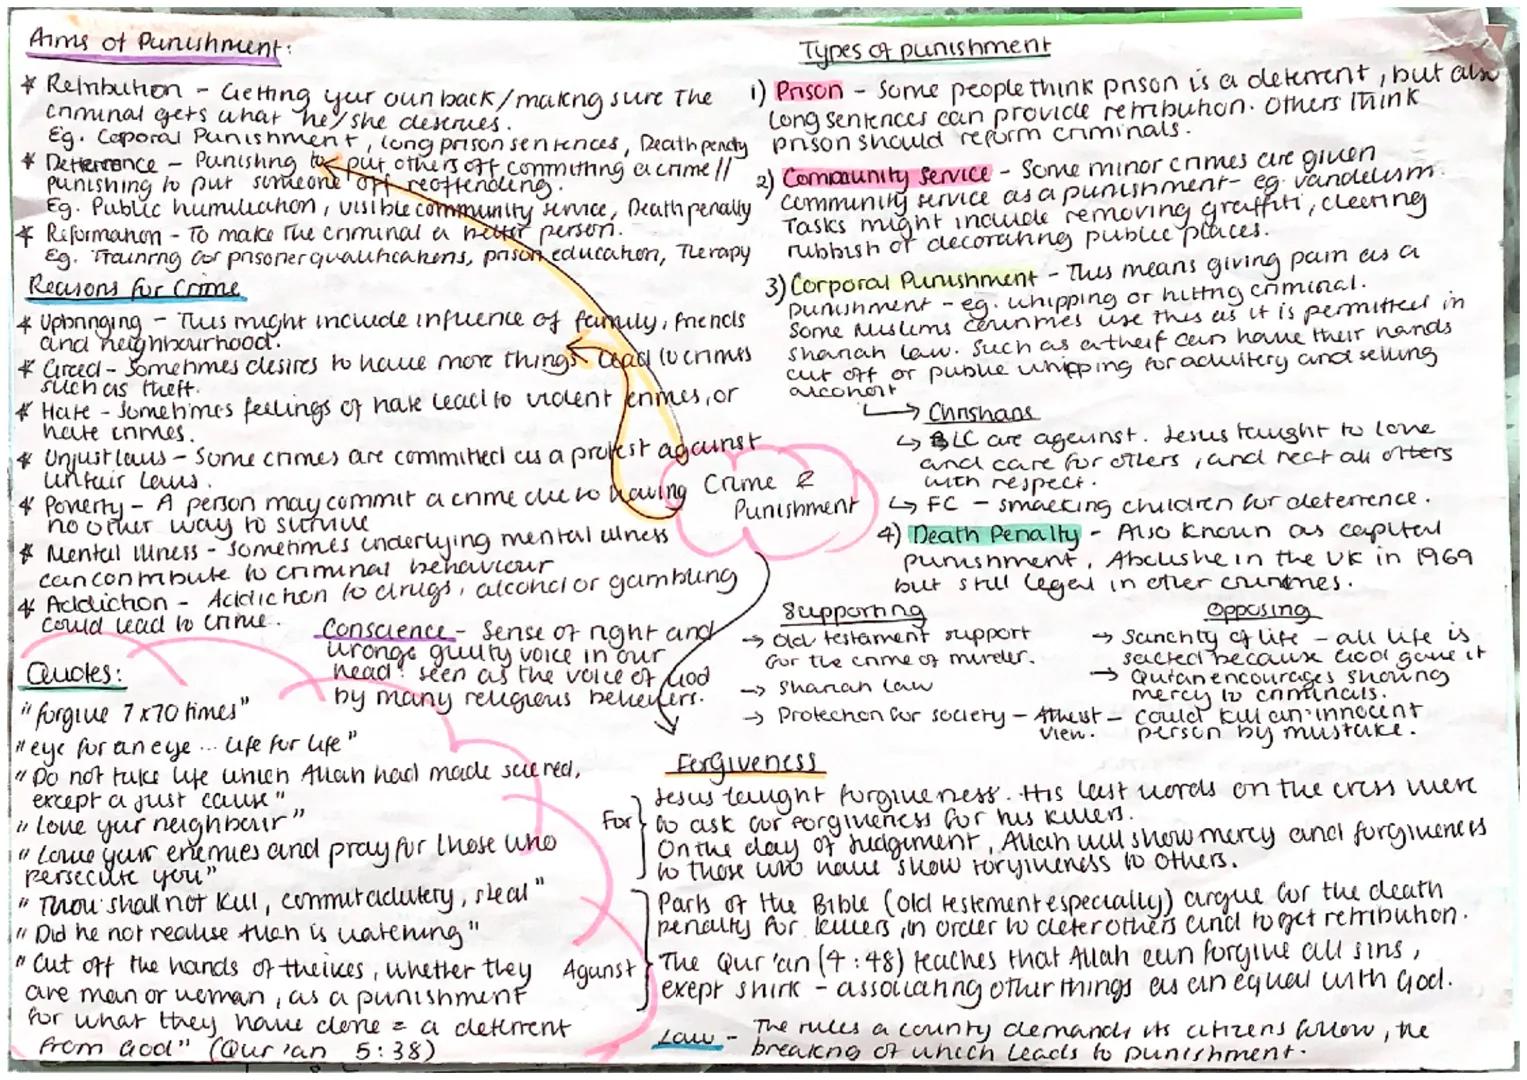 Aims of Punishment:
* Retribution - Getting your own back/making sure The
criminal gets what he/she deserves.
Eg. Coporal Punishment, long prison sentences, Death penalty
* Deterrance - Punishing to put others off committing a crime //
punishing to put someone off reoffending.
Eg. Public humiliation, visible community service, Death penalty
* Reformation - To make the criminal a better person.
Eg. Training for prisoner qualifications, prison education, Therapy
Reasons for Crime
* Upbringing - This might include influence of family, friends
and neighbourhood.
* Greed - Sometimes desires to have more things lead to crimes
such as theft.
* Hate - Sometimes feelings of hate lead to violent crimes, or
hate crimes.
* Unjust laws - Some crimes are committed as a protest against
unfair laws.
* Poverty - A person may commit a crime due to having
no other way to survive
* Mental illness - Sometimes underlying mental illness
can contribute to criminal behaviour
* Addiction - Addiction to drugs, alcohol or gambling
could lead to crime.
Conscience - Sense of right and
wrong guilty voice in our
head. seen as the voice of God
by many religious believers.
Quotes:
"forgive 7x70 times"
"eye for an eye ... life for life"
"Do not take life which Allah had made sacred,
except a just cause"
"Love your neighbour"
"Love your enemies and pray for those who
persecute you"
"Thou shall not kill, commit adultery, steal"
"Did he not realise Allah is watching"
"Cut off the hands of theives, whether they
are man or woman, as a punishment
for what they have done = a deterrent
from God" (Qur'an 5:38)
Crime &
Punishment
Types of punishment
1) Prison - Some people think prison is a deterrent, but also
long sentences can provide retribution. Others think
prison should reform criminals.
2) Community Service - Some minor crimes are given
community service as a punishment - eg. vandelism.
Tasks might include removing graffiti, clearing
rubbish or decorating public places.
3) Corporal Punishment - This means giving pain as a
punishment - eg. whipping or hitting criminal.
Some Muslims countries use this as it is permitted in
shariah law. Such as a theif can have their hands
cut off or public whipping for adultery and selling
↳ Christians
↳ LC are against. Jesus taught to love
and care for others, and treat all others
with respect.
↳ FC - smacking children for deterrence.
4) Death Penalty - Also known as capital
punishment. in the UK in 1969
but still legal in other countries.
Supporting
→ Old testament support
for the crime of murder.
→ Shariah law
→ Protection for society - Atheist view.
Opposing
→ Sanctity of life - all life is
sacred because God gave it
→ Quran encourages showing
mercy to criminals.
- could kill an innocent
person by mistake.
Forgiveness
For
Jesus taught forgiveness. His last words on the cross were
to ask for forgiveness for his killers.
On the day of Judgement, Allah will show mercy and forgiveness
to those who have show forgiveness to others.
Against
Parts of the Bible (old testement especially) argue for the death
penalty for killers, in order to deter others and to get retribution.
The Qur'an (4:48) teaches that Allah can forgive all sins,
exept shirk - associating other things as an equal with God.
Law - The rules a county demands its citizens follow, the
breaking of which leads to punishment.